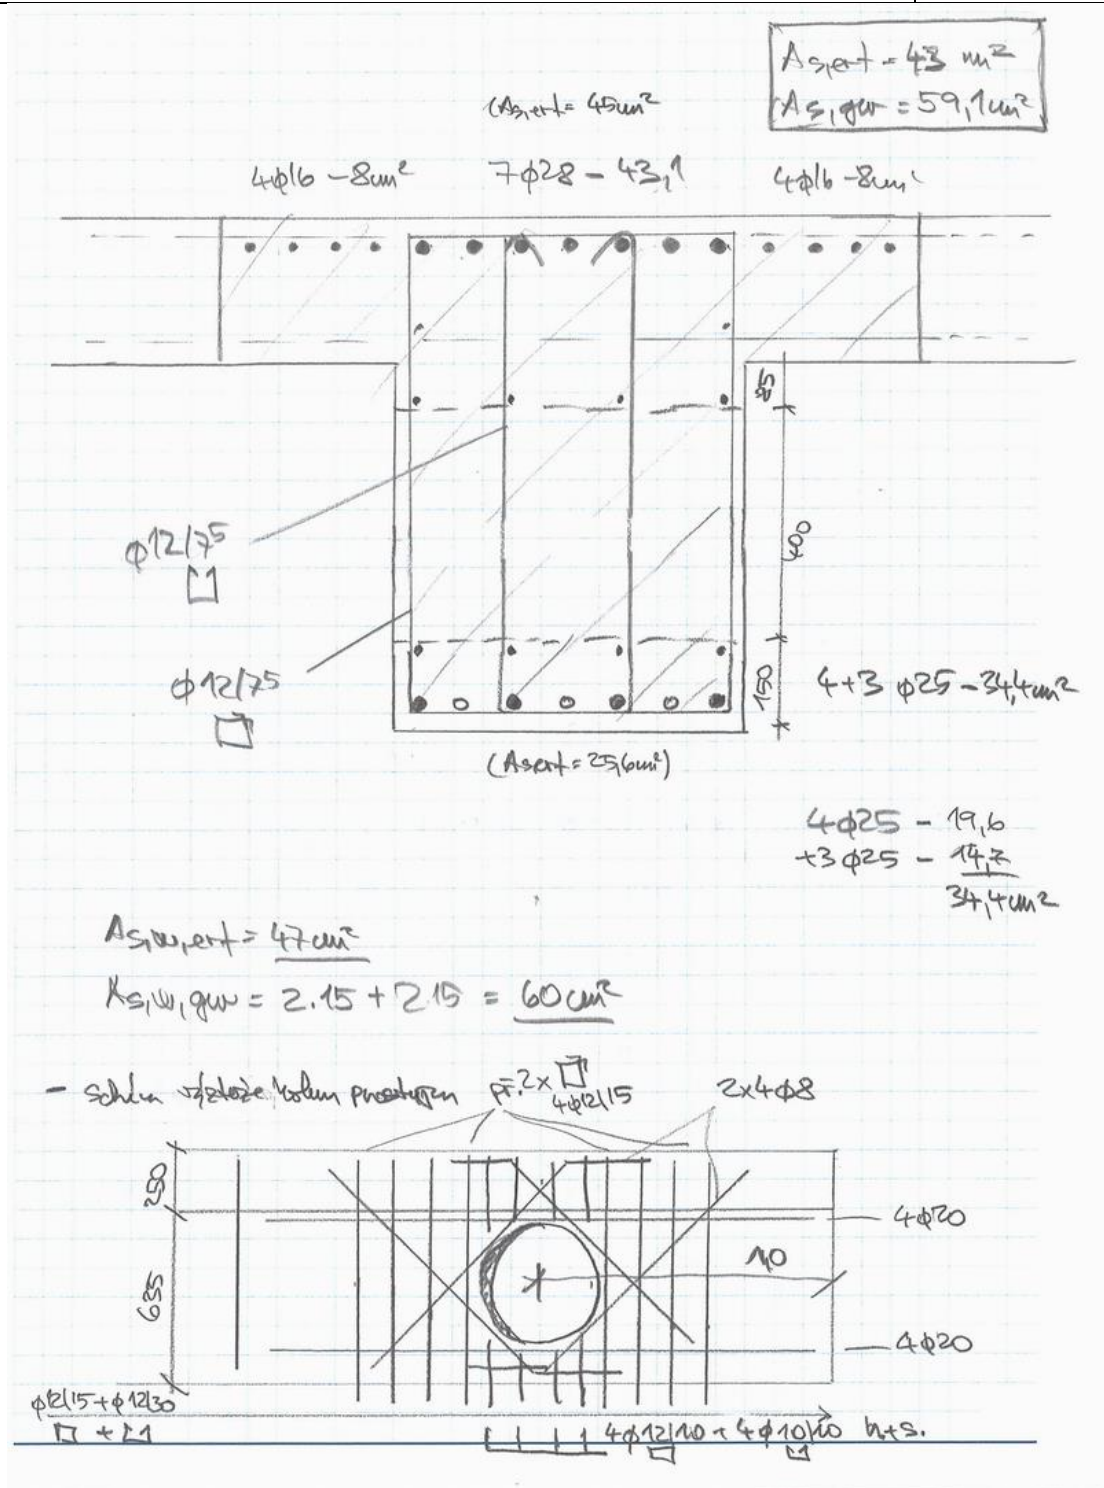 As,erf = 43 cm²
As,gew = 59,1 cm²
(As,erf = 45cm²
4ϕ16 - 8cm²
7ϕ28 - 43,1
4ϕ16 - 8cm²
25
400
150
ϕ12/7⁵
ϕ12/7⁵
4+3 ϕ25 - 34,4cm²
(As,erf = 25,6cm²)
4ϕ25 - 19,6
+3ϕ25 - 14,7
34,4cm²
As,w,erf = 47cm²
As,w,gew = 2.15 + 2.15 = 60cm²
2x
4ϕ12/15
2x4ϕ8
250
635
4ϕ20
1,0
4ϕ20
ϕ12/15 + ϕ12/30
+
4ϕ12/10 + 4ϕ10/10 h+s.